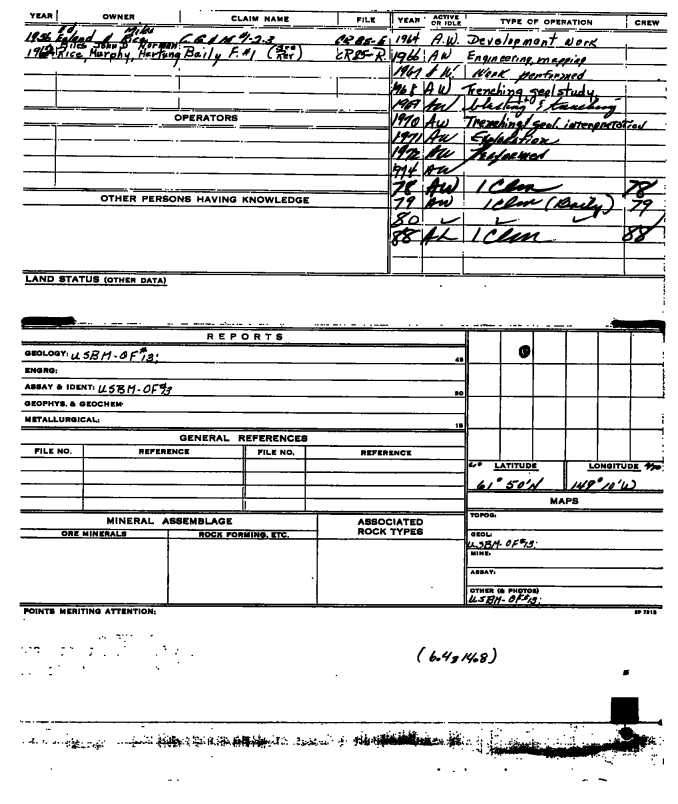 YEAR OWNER CLAIM NAME FILE YEAR ACTIVE OR IDLE TYPE OF OPERATION CREW
1956 England & Rice C.E.R.M. #1-2-3 CR85-E 1964 A.W. Development work
Miles John D Norman
Rice, Murphy, Hartung Baily F. #1 CR85-R 1966 AW Engineering, mapping
1967 A.W. Work performed
1968 AW Trenching geol study,
1969 AW blasting & trenching
OPERATORS
1970 AW Trenching/geol. interpretation
1971 AW Exploration
1972 AW Performed
1974 AW
78 AW 1 Clm 78
OTHER PERSONS HAVING KNOWLEDGE
79 AW 1 Clm (Baily) 79
80
88 AL 1 Clm 88
LAND STATUS (OTHER DATA)
REPORTS
GEOLOGY: USBM-OF#13; 45
ENGRG:
ASSAY & IDENT: USBM-OF#13 30
GEOPHYS. & GEOCHEM
METALLURGICAL: 15
GENERAL REFERENCES
FILE NO. REFERENCE FILE NO. REFERENCE
LATITUDE LONGITUDE
61° 50'N 149° 10'W
MAPS
TOPOG:
MINERAL ASSEMBLAGE ASSOCIATED ROCK TYPES
ORE MINERALS ROCK FORMING, ETC.
GEOL:
USBM-OF#13;
MINE:
ASSAY:
OTHER (& PHOTOS)
USBM-OF#13;
POINTS MERITING ATTENTION: SP 7213
(6.4 x 14.8)